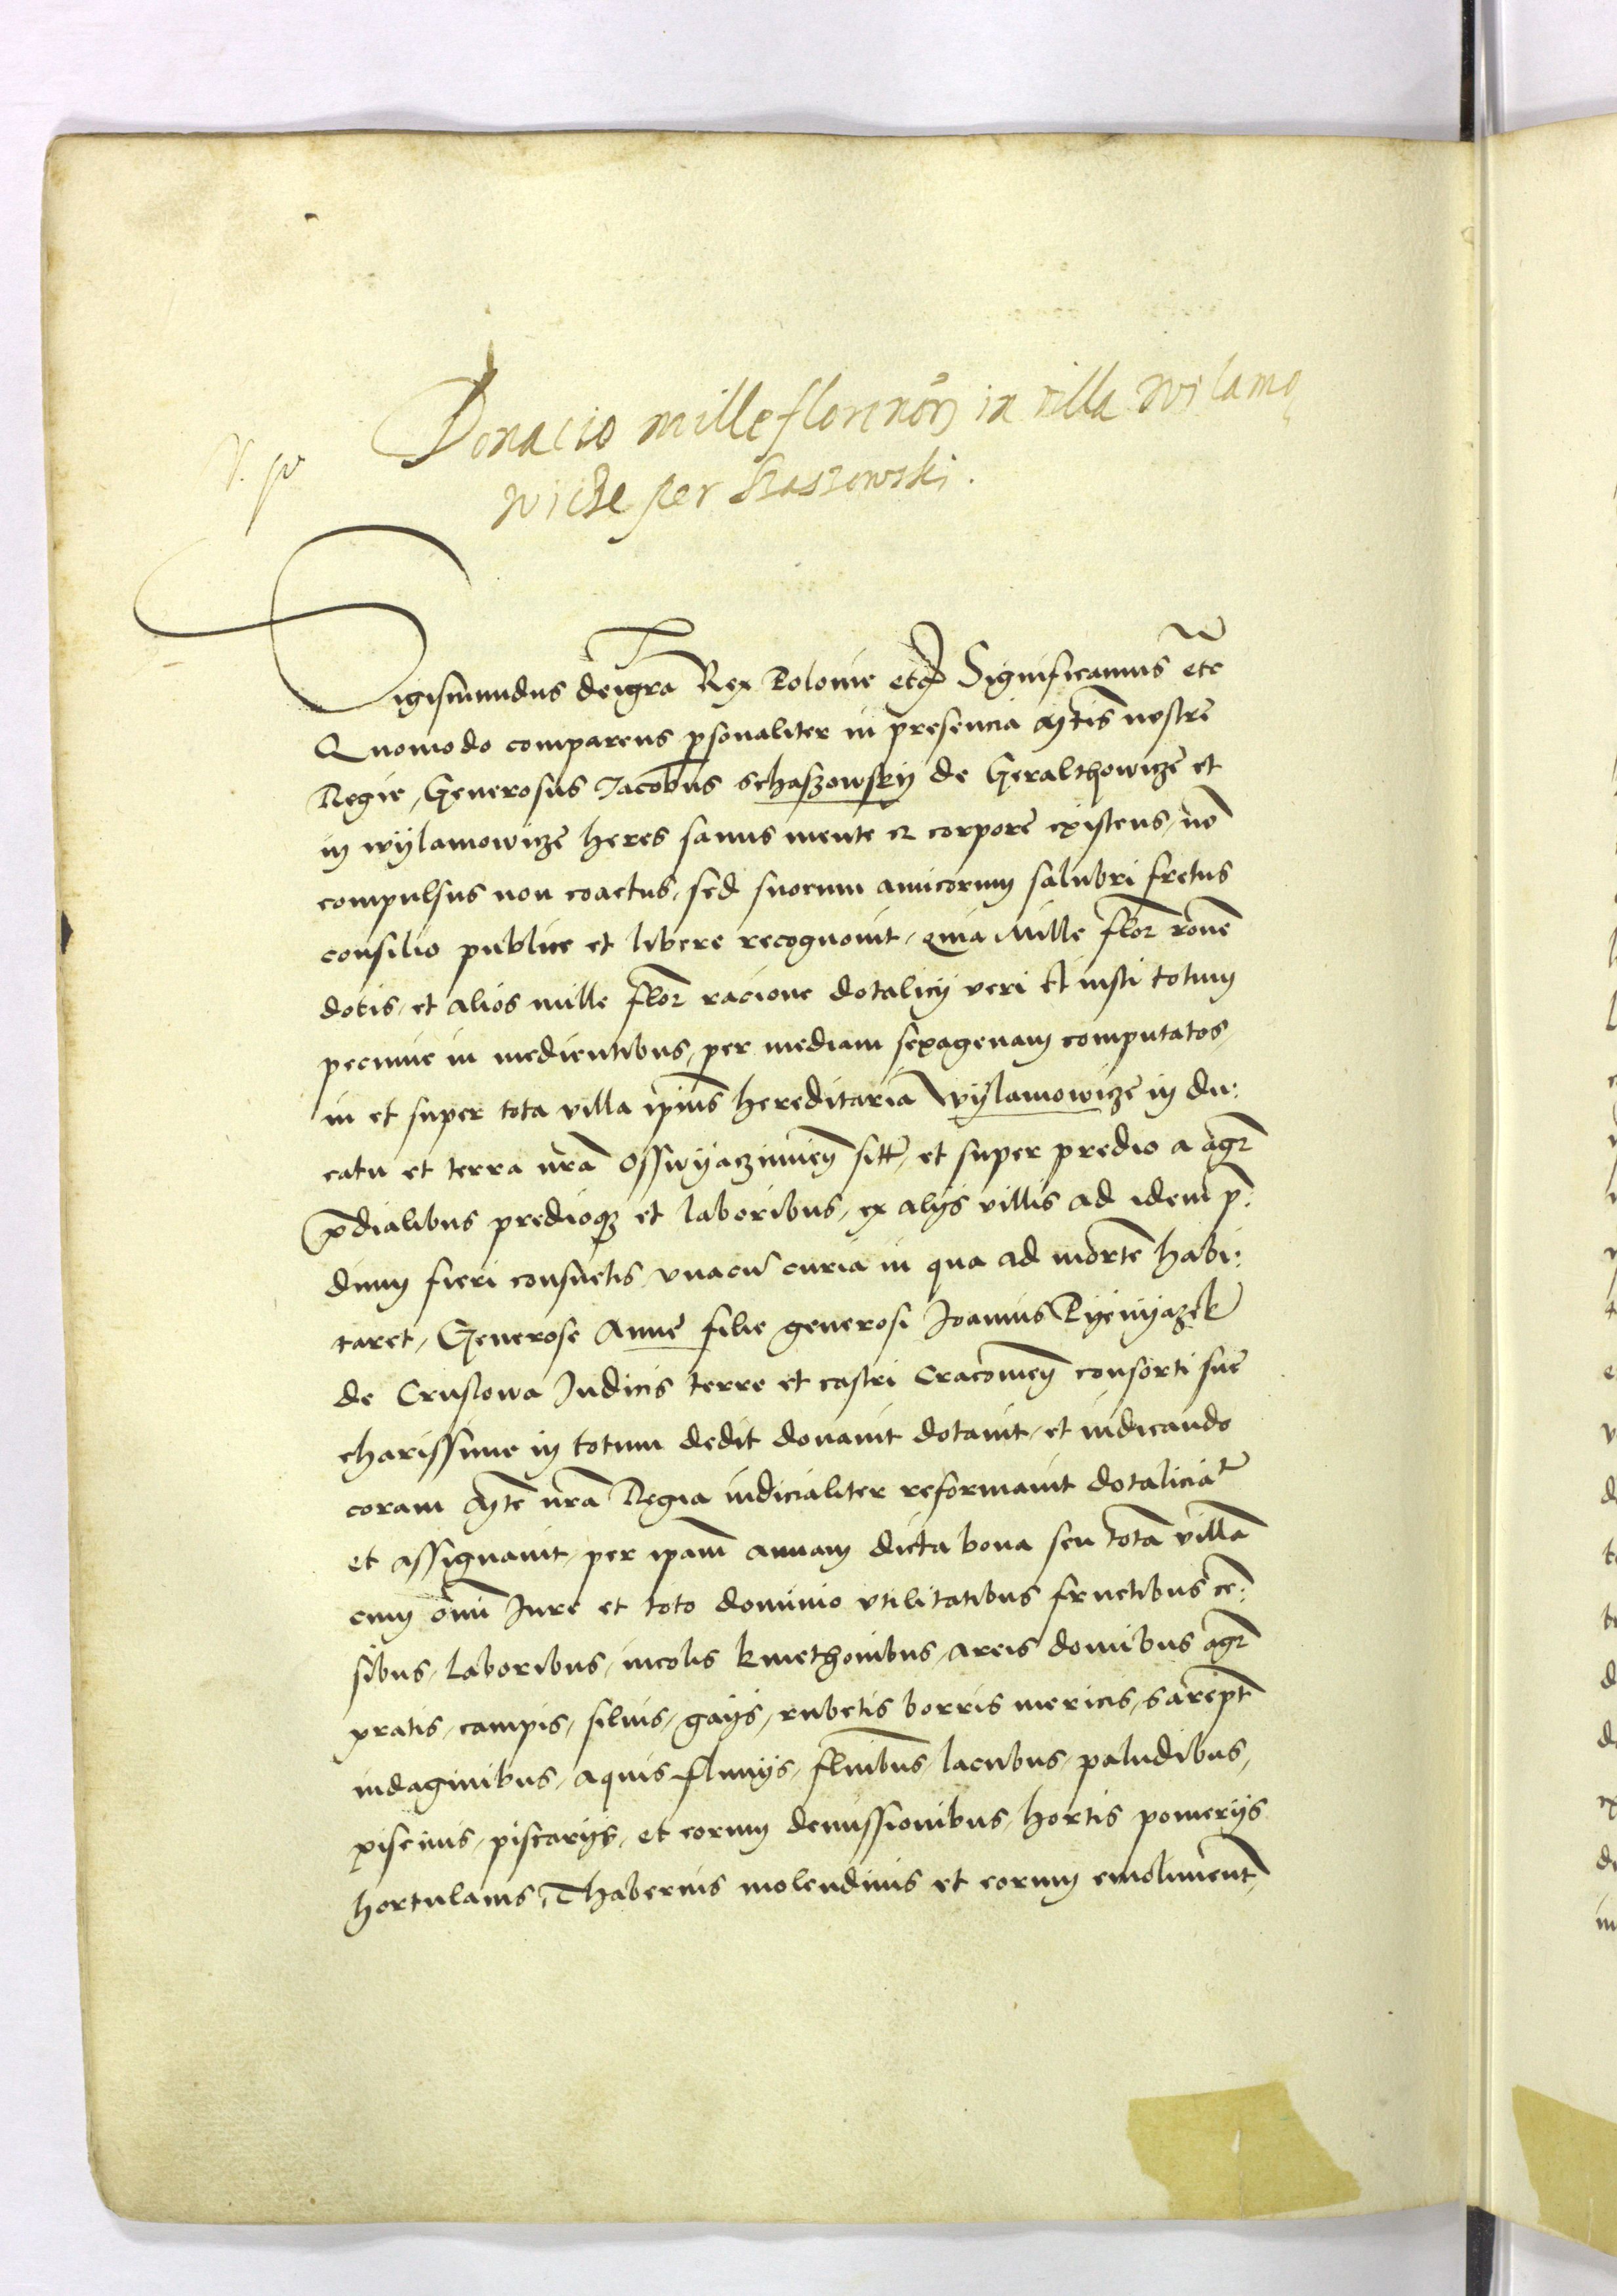 Donacio mille florenor in villa Wilamo
wicze per Szaszowski.
Sigismundus deigra Rex Polonie etc Significamus etc
Quomodo comparens psonaliter in presencia Mtis nostre
Regie, Generosus Jacobus Schaszowskij de Geralthowicze et
in Wijlamowicze heres sanus mente et corpore existens, no
compulsus non coactus, sed suorum amicorum salubri fretus
consilio publice et libere recognovit, Quia Mille flor rone
dotis, et alios mille flor racione dotalicij veri et iusti totum
pecunie in medientibus, per mediam sexagenam computatos,
in et super tota villa ipius hereditaria Wijlamowicze in du:
catu et terra nra Osswijaczimien sitt, et super predio a agr
pdialibus predioq et laboribus, ex alijs villis ad idem p:
dium fieri consuetis, vnacu curia in qua ad morte habi:
taret, Generose Anne filie generosi Joannis Pijenijazek
de Cruslowa Judicis terre et castri Cracovien consorti sue
charissime in totum dedit donavit dotavit, et indicando
coram Mte nra Regia iudicialiter reformavit dotaliciatr
et assignavit, per ipam annam dicta bona seu tota villa
cum omi Jure et toto dominio vtilitatibus fructibus ce:
sibus, laboribus, incolis kmethonibus, areis domibus agr
pratis, campis, silvis, gaijs, rubetis borris mericis, sarept
indaginibus, aquis fluvijs, flnibus, lacubus, paludibus,
piscinis, piscarijs, et eorum demissionibus, hortis pomerijs
hortulanis, Thabernis molendinis et eorum emoliment